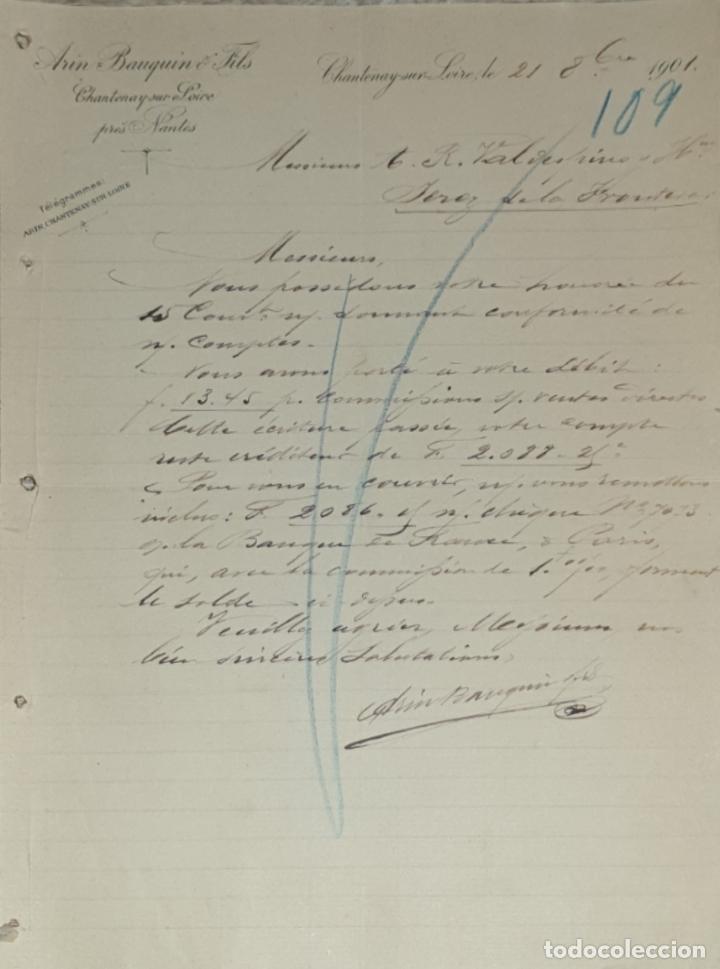 Arin Bauquin & Fils
Chantenay-sur-Loire
près Nantes
Télégrammes:
ARIN, CHANTENAY-SUR-LOIRE
Chantenay-sur-Loire, le 21 8bre 1901.
109
Messieurs A. R. Valdespino y Hno
Jerez de la Frontera
Messieurs,
Vous possédons votre honorée du
15 Court nous donnant conformité de
n/. Comptes.
Vous avons porté à votre débit:
f. 13.45 p. Commissions s/. ventes directes
Cette écriture passée, votre compte
reste créditeur de F.
Pour vous en couvrir, n/. vous remettons
inclus: F. 2086. s/ n/. chèque
la Banque de France, à Paris,
qui, avec la commission de forment
le solde ci-dessus.
Veuillez agréer, Messieurs, nos
bien sincères Salutations,
Arin Bauquin fils
todocoleccion